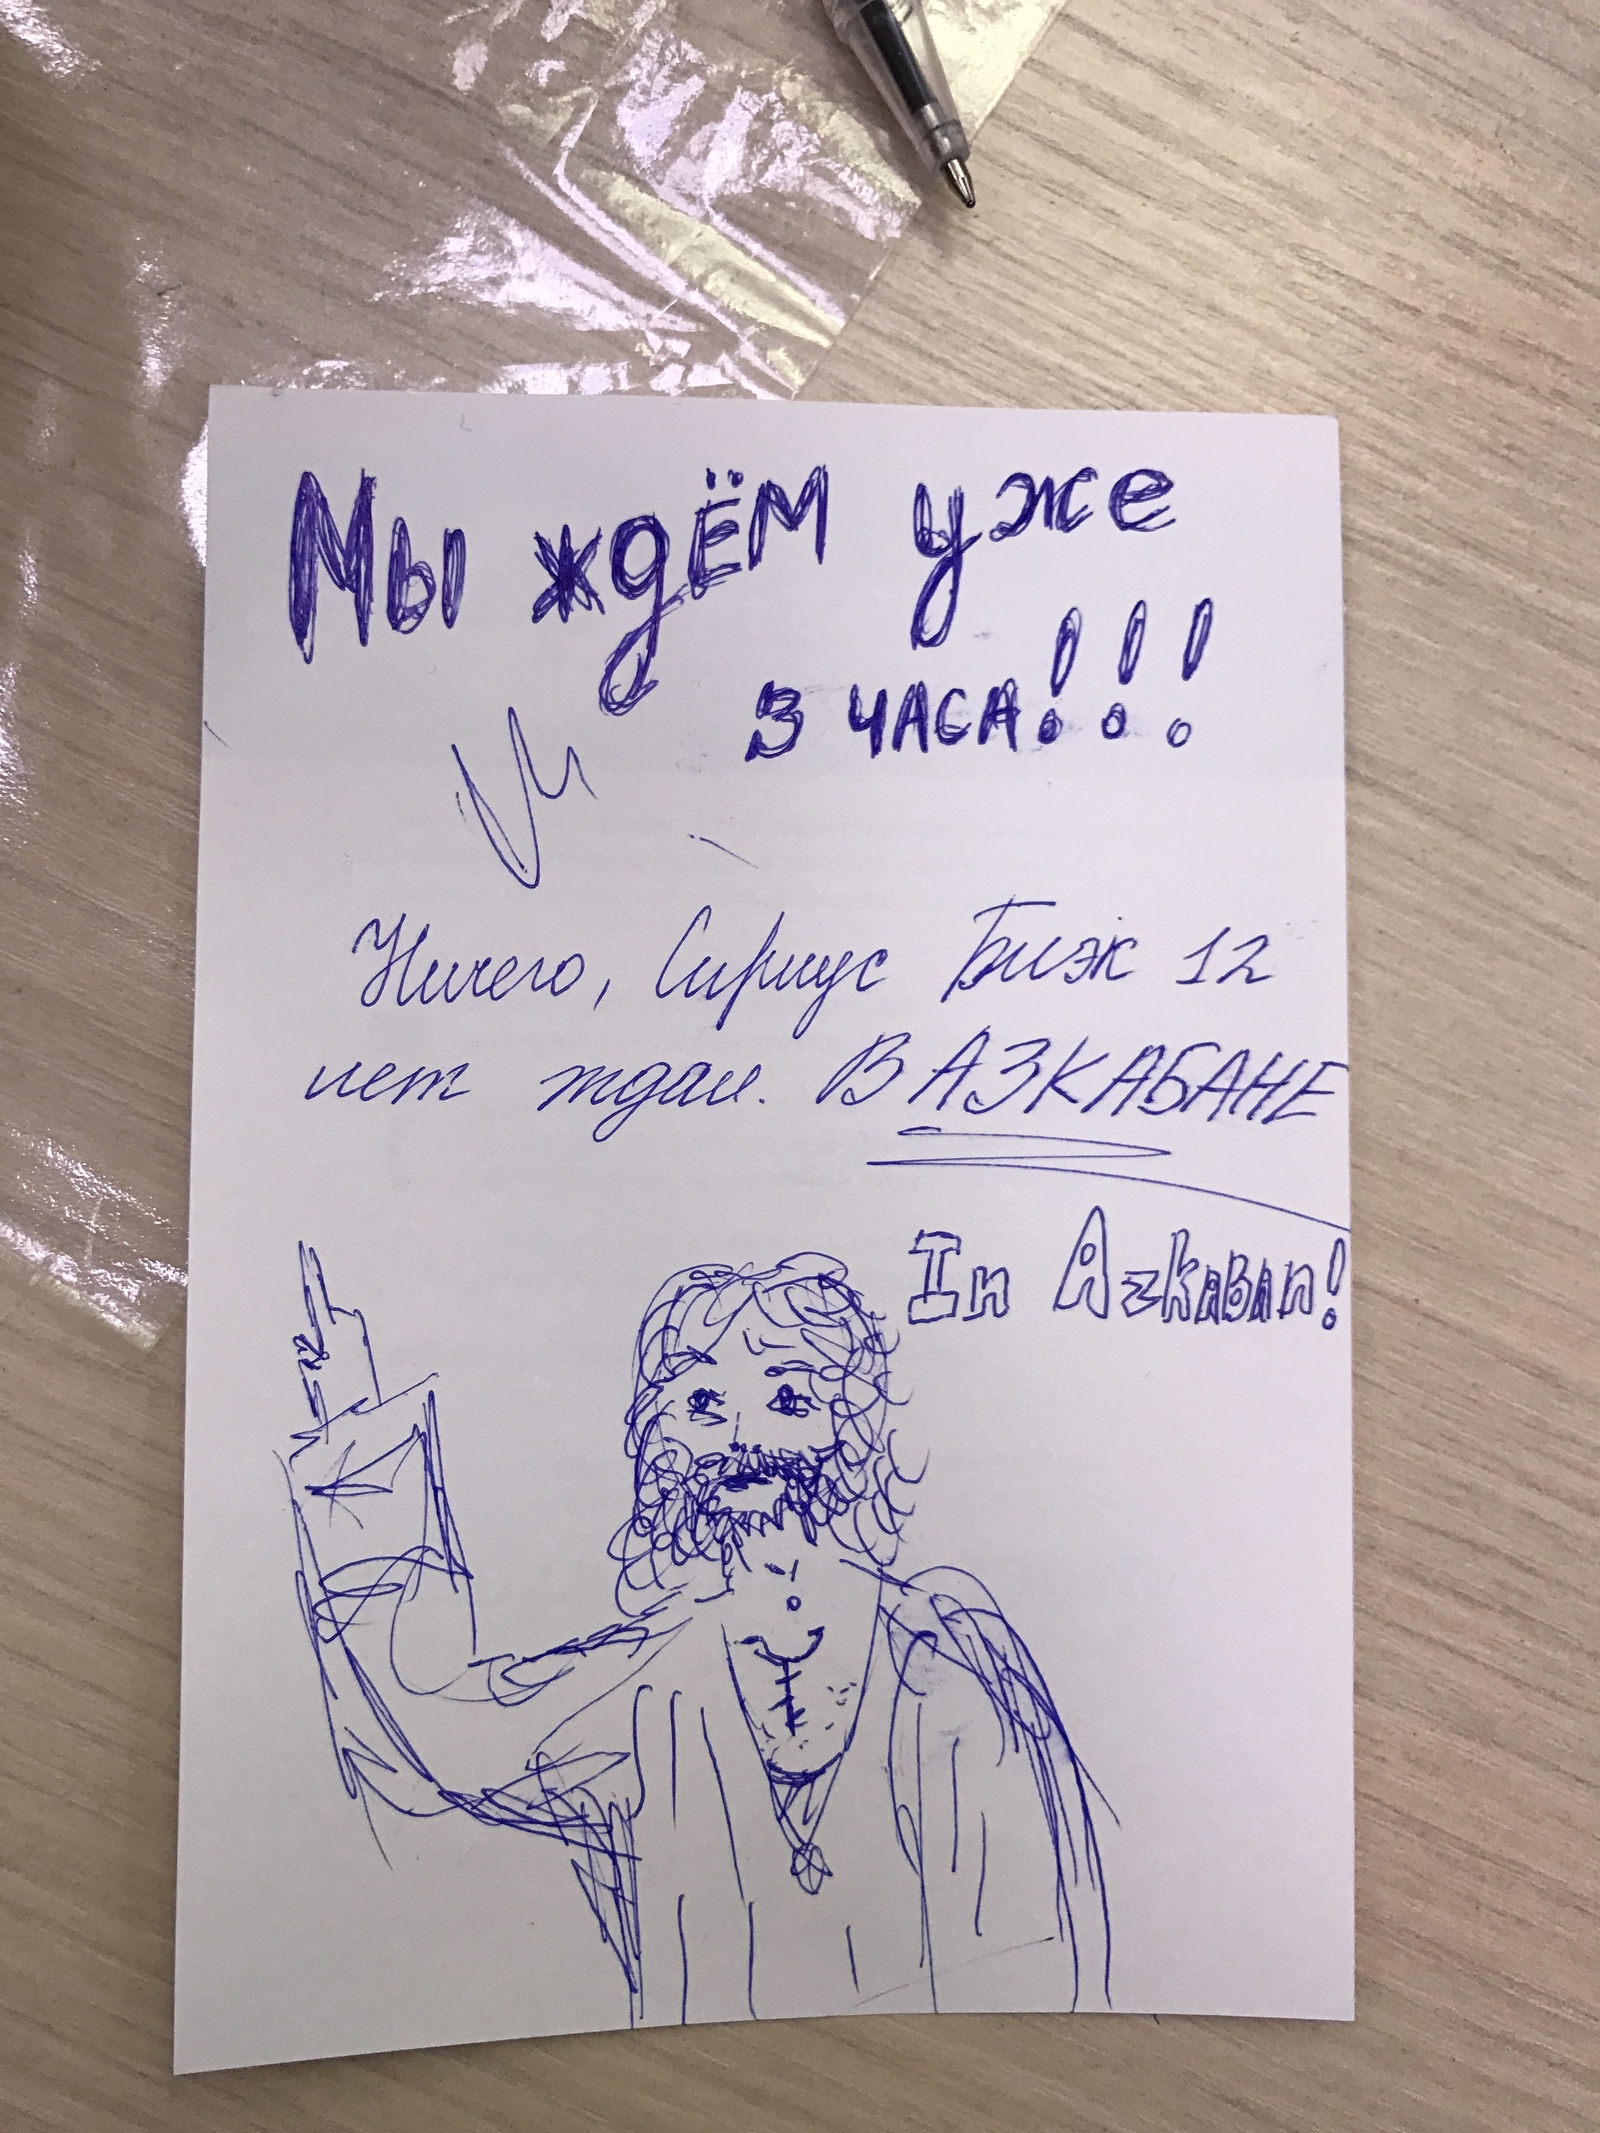 Мы ждём уже
3 часа!!!
Ничего, Сириус Блэк 12
лет ждал. В АЗКАБАНЕ
In Azkaban!